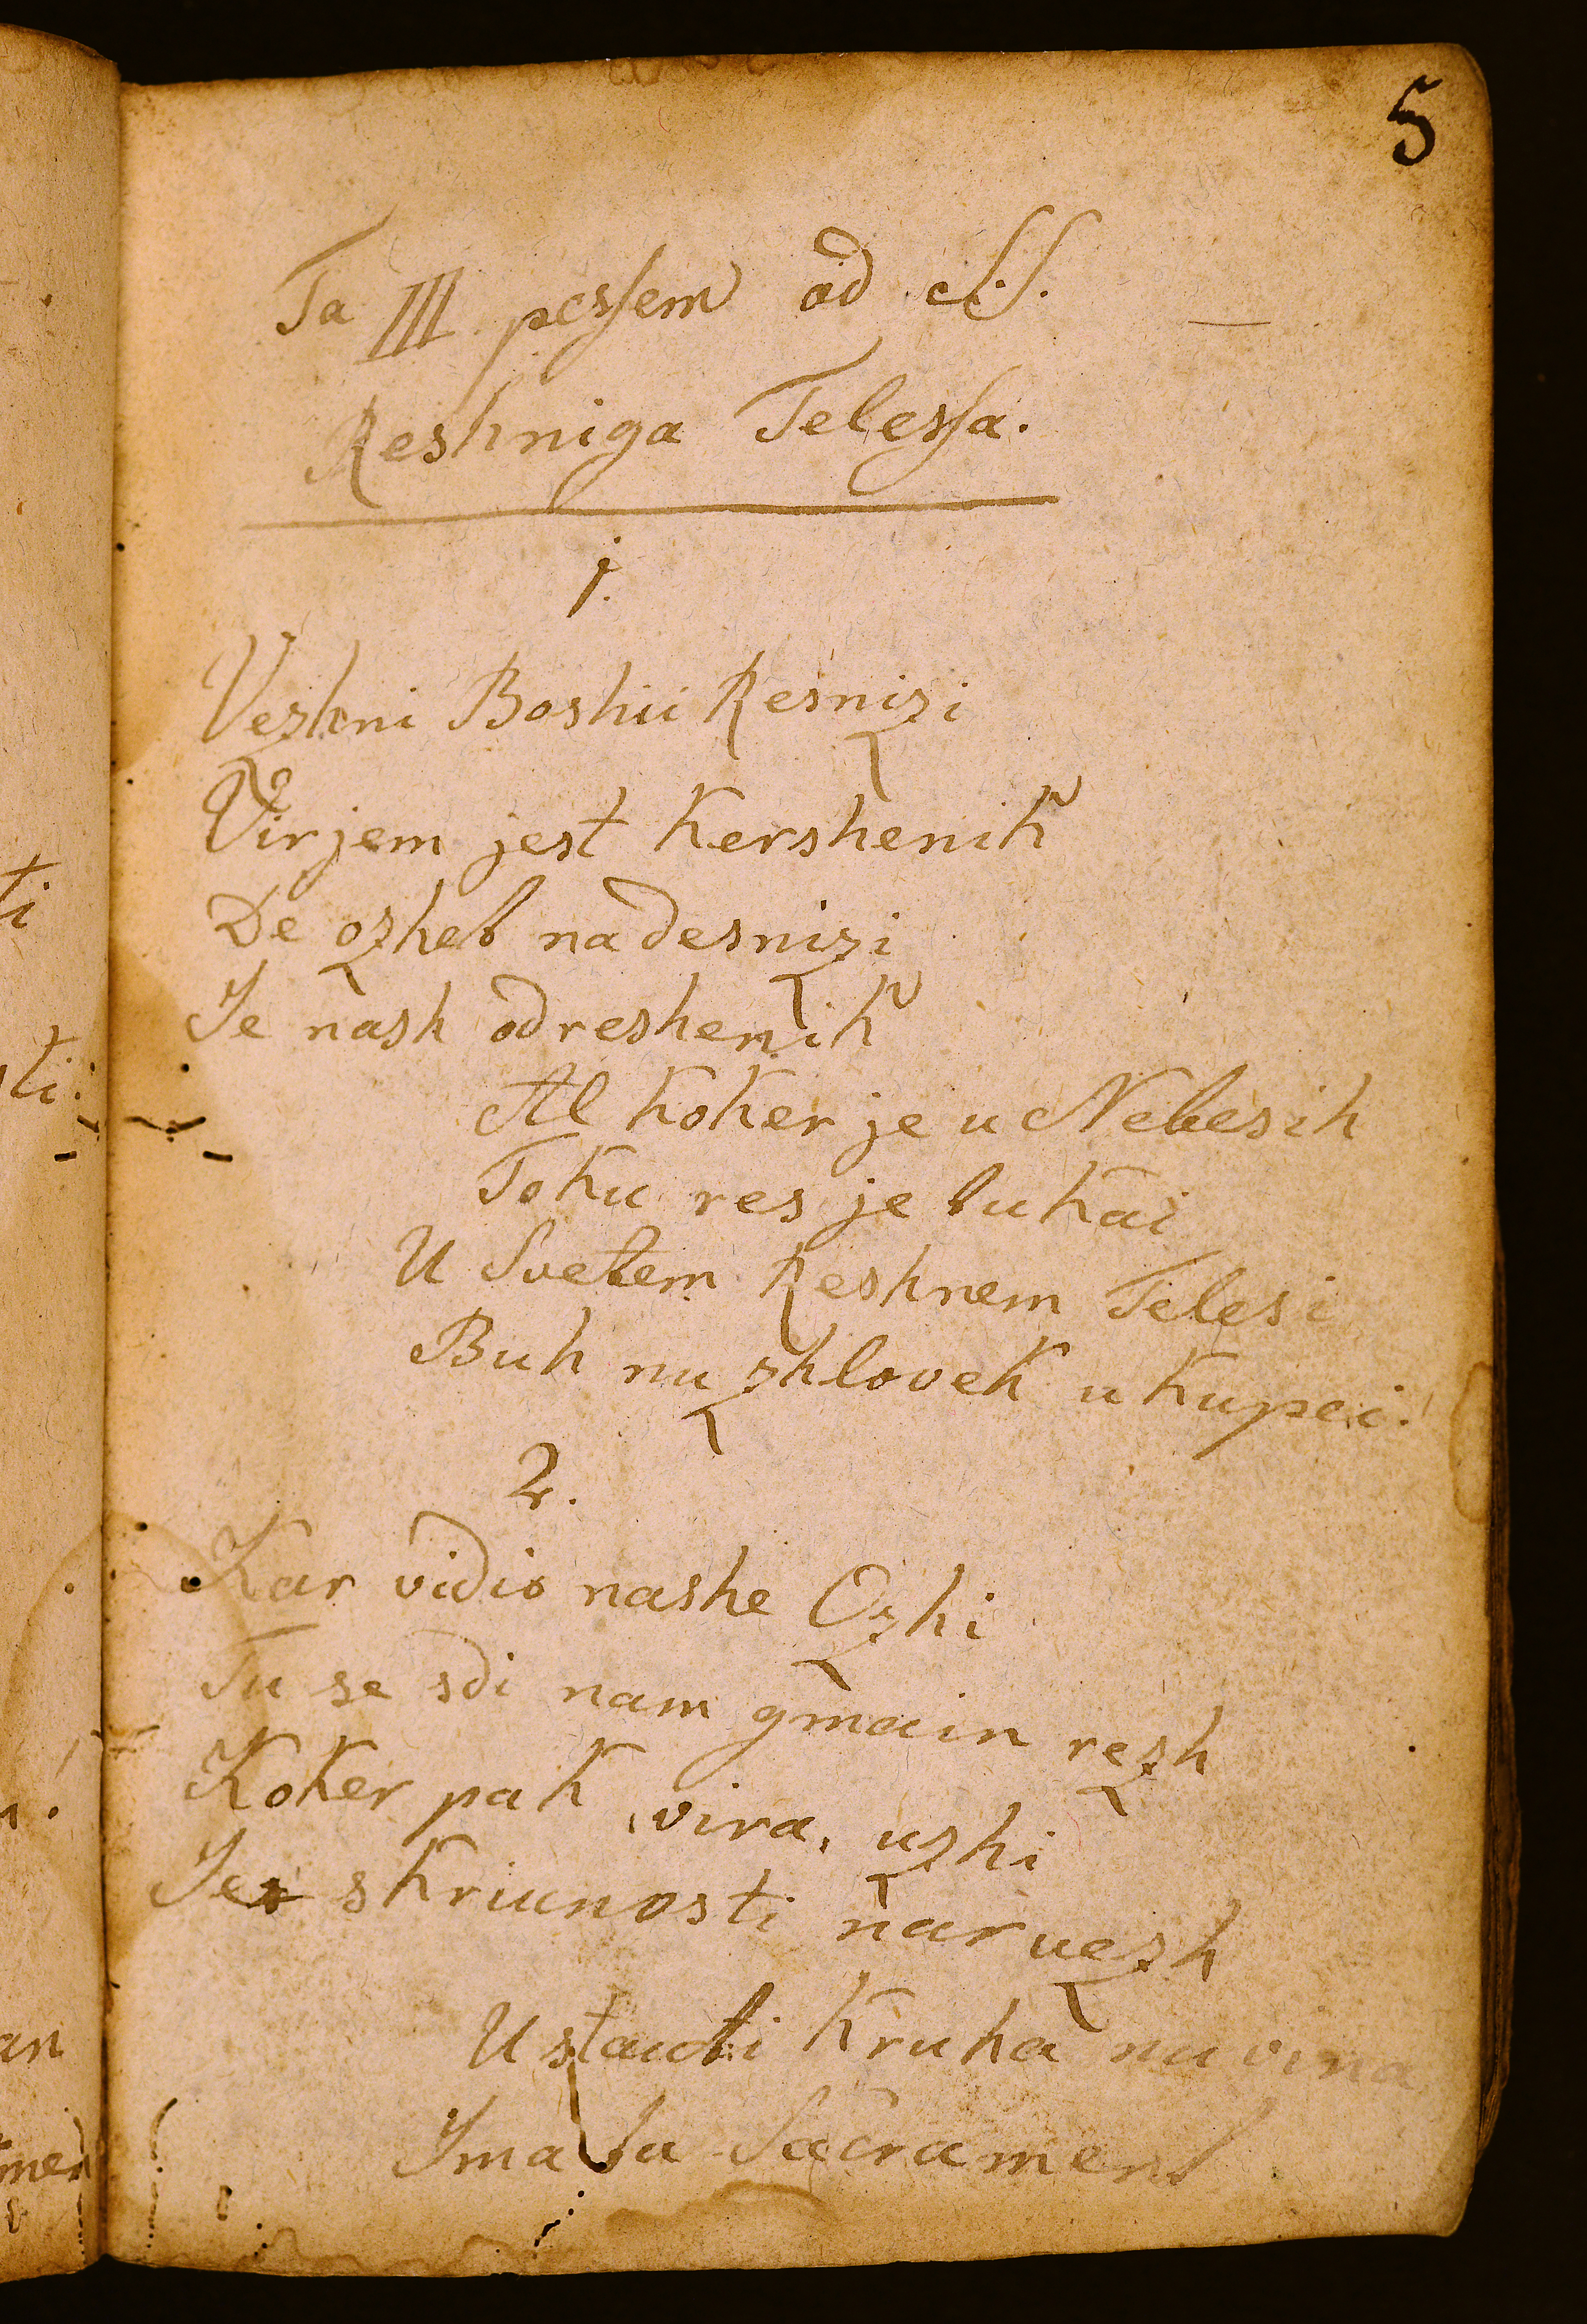 5
Ta III pessem od S.S.
Reshniga Telessa.
1.
Vezhni Boshii Resnizi
Virjem jest Kershenik
De ozhet na desnizi
Je nash odreshenik
Al koker je u Nebesih
Toku res je tukai
U Svetem Reshnem Telesi
Buh nu zhlovek ukupei.
2.
Kar vidio nashe Ozhi
Tu se sdi nam gmain rezh
Koker pak vira, uzhi
Je skriunosti nar uezh
U staudti Kruha nu vina
Ima ta Sacrament